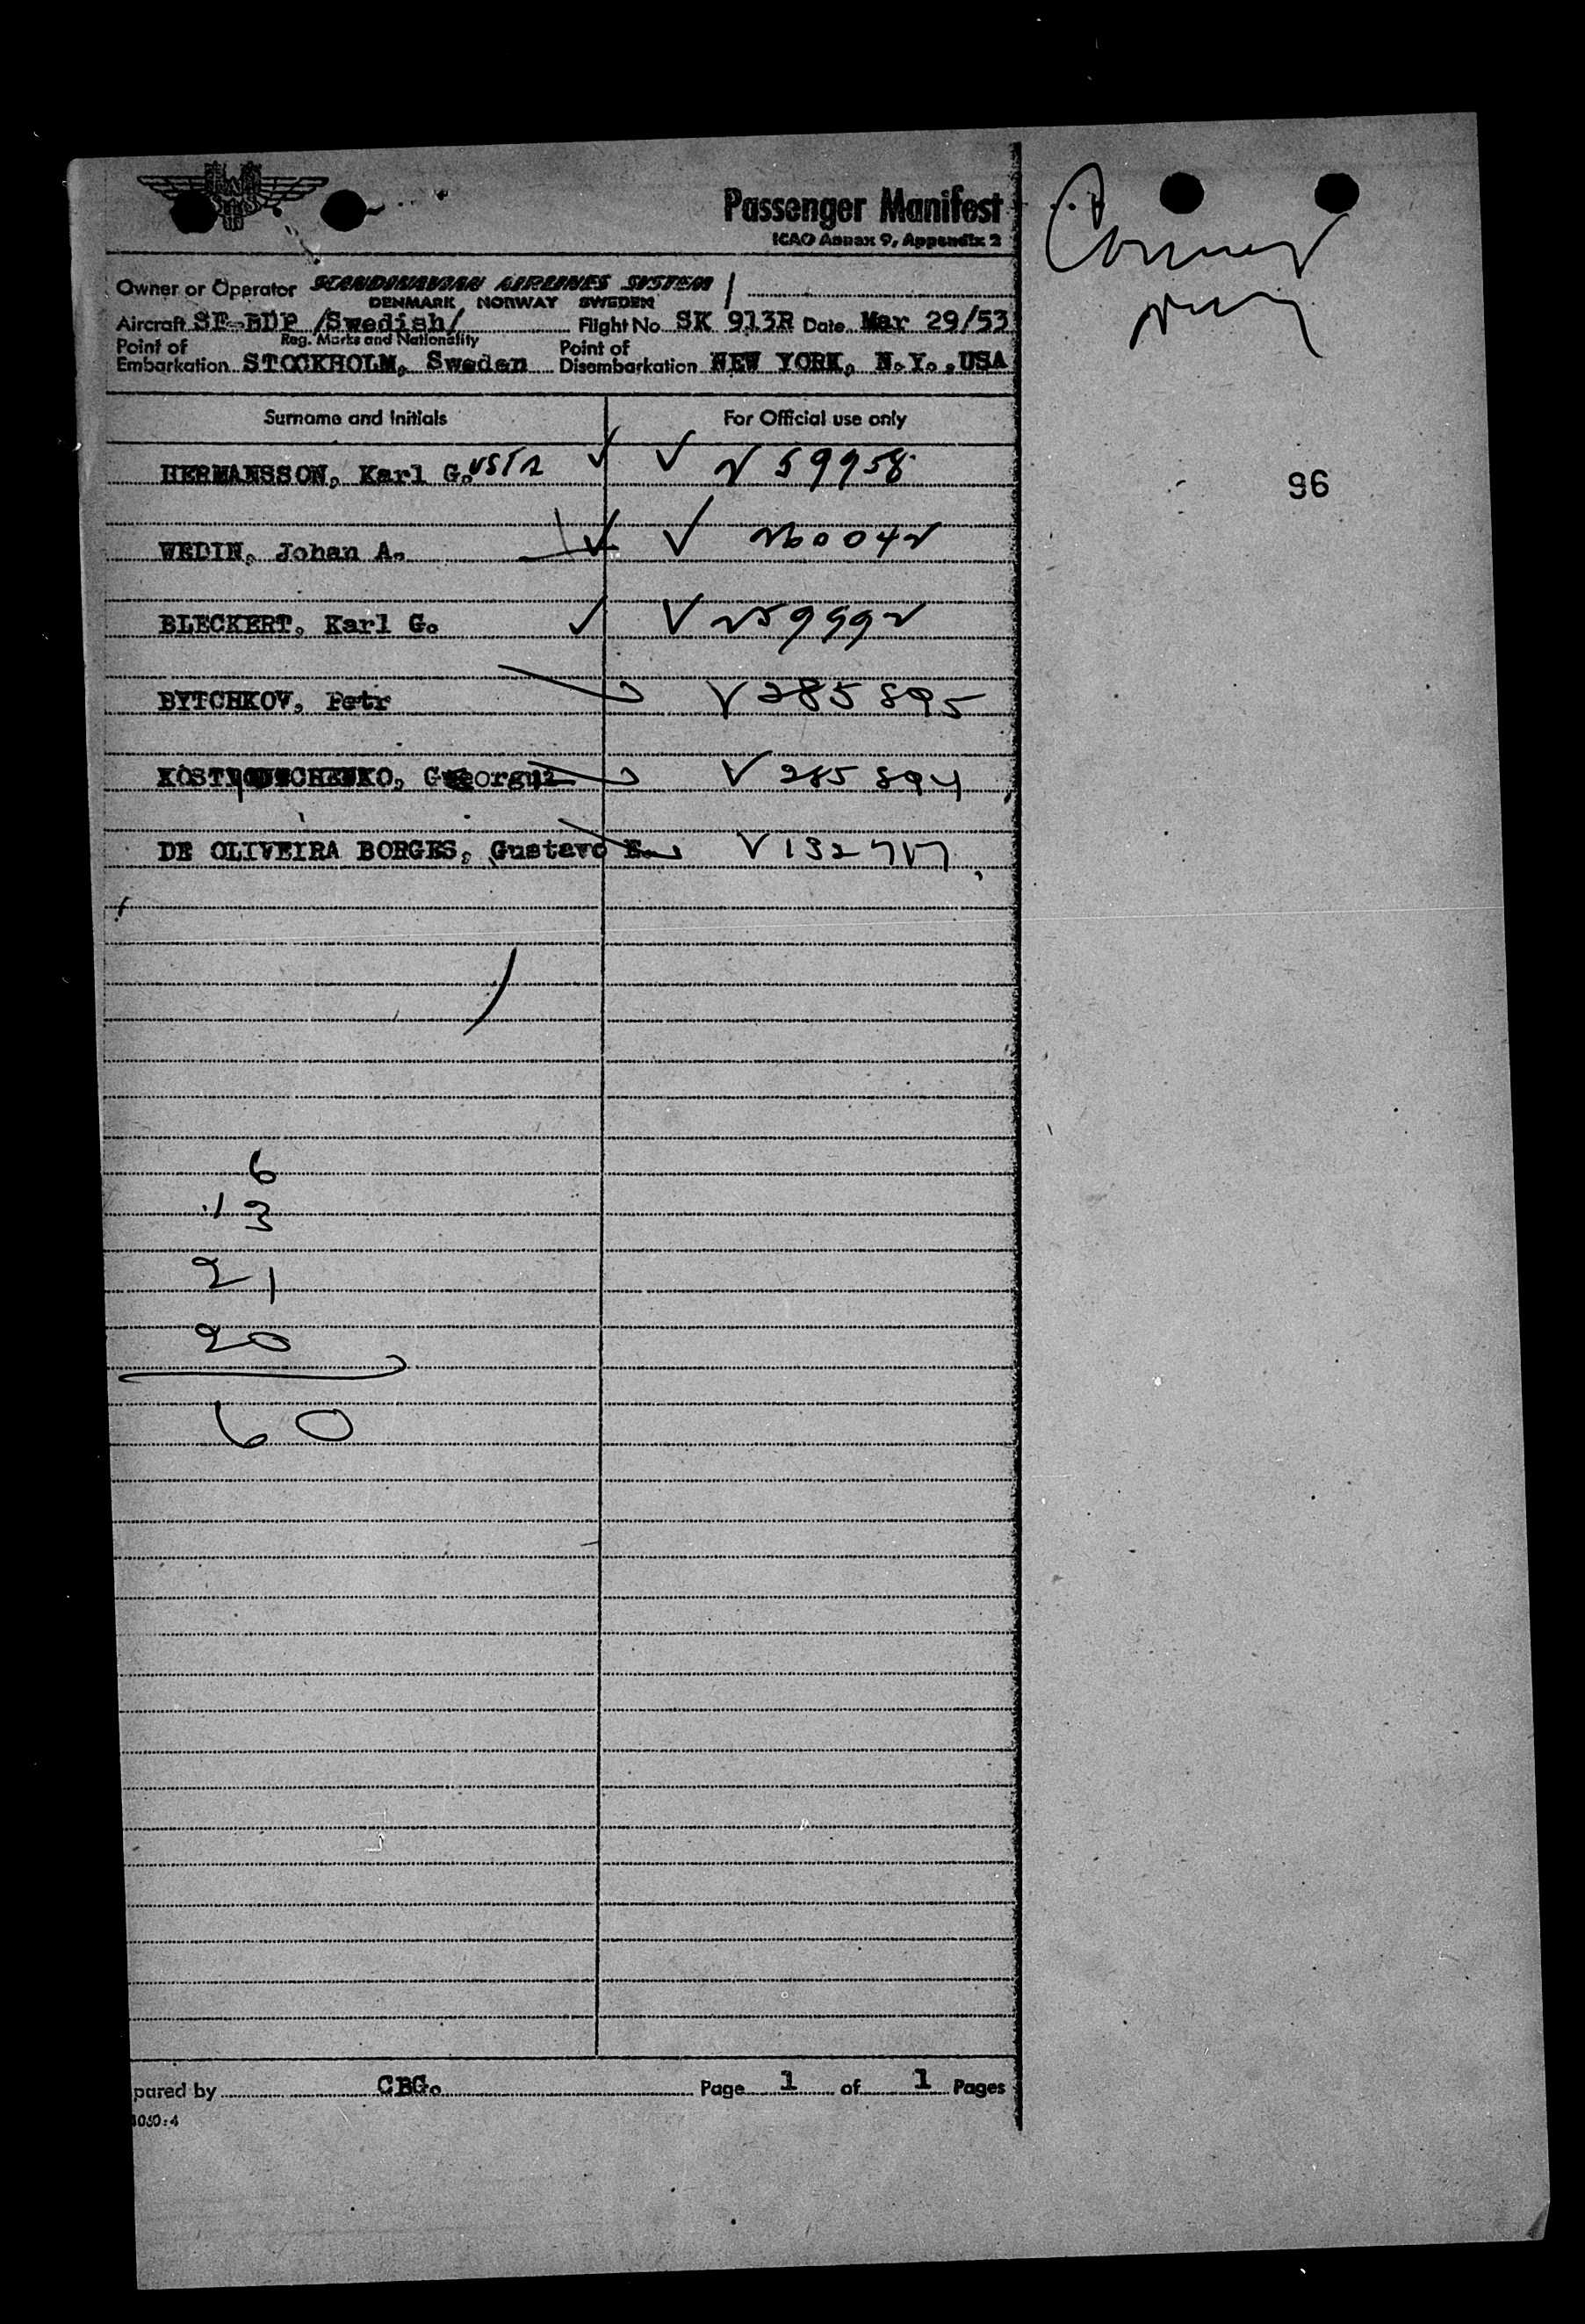 Passenger Manifest
ICAO Annex 9, Appendix 2
Owner or Operator SCANDINAVIAN AIRLINES SYSTEM
DENMARK NORWAY SWEDEN
Aircraft SE-BDP /Swedish/ Flight No SK 913R Date Mar 29/53
Reg. Marks and Nationality
Point of Embarkation STOCKHOLM, Sweden Point of Disembarkation NEW YORK, N.Y., USA
Surname and Initials For Official use only
HERMANSSON, Karl G. 59958
96
WEDIN, Johan A. 
BLECKERT, Karl G. 
BYTCHKOV, Petr V285895
V285894
DE OLIVEIRA BORGES, Gustavo E.
6
13
21
20
60
pared by CBG. Page 1 of 1 Pages